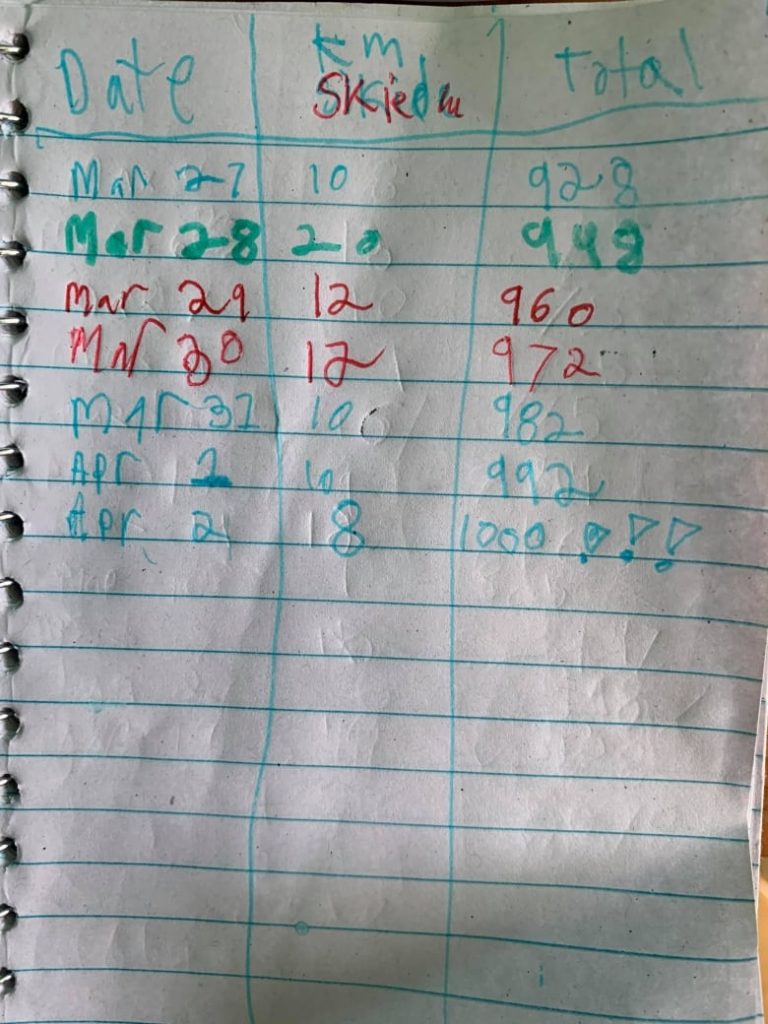 Date km Total
Skied
Mar 27 10 928
Mar 28 20 948
Mar 29 12 960
Mar 30 12 972
Mar 31 10 982
Apr 1 10 992
Apr 2 8 1000 !!!